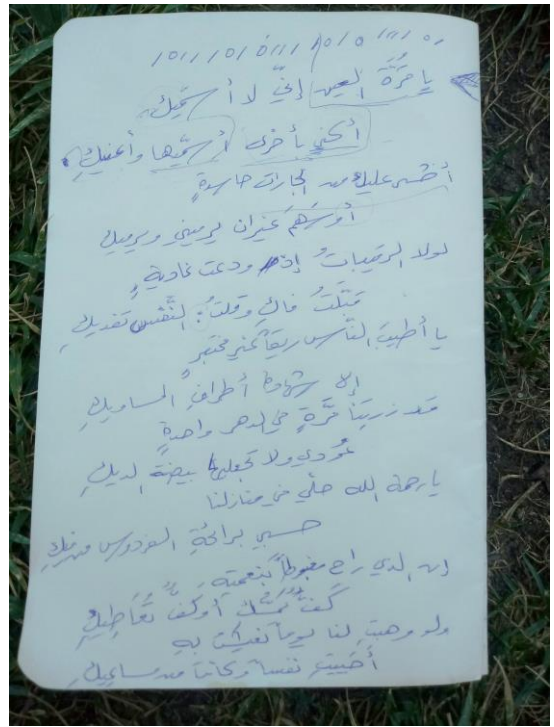 /0///0/0 0///0/ /0/0 0//0/ /0/0
يا قُرَّةَ العين إنّي لا أسمّيكِ
أكني بأخرى أسمّيها وأعنيكِ
أخشى عليك من الجارات حاسدةٍ
أو سهمَ غيران يرميني ويرميكِ
لولا الرقيباتُ إذ ودعت غاديةٍ
قبّلتُ فاكِ وقلتُ: النّفْس تفديكِ
يا أطيبَ النّاس ريقاً غير مختبرٍ
إلا شهادة أطرافِ المساويكِ
قد زرتِنا مَرَّةً في الدهر واحدةٍ
عُودي ولا تجعليها بيضة الديكِ
يا رحمة الله حلّي في منازلنا
حسبي برائحةِ الفردوس من فيكِ
إن الذي راح مغبوطاً بنعمتِه
كفٌّ تَمَسُّكِ أو كفٌّ تُعَاطيكِ
ولو وهبتِ لنا يوماً نعيش بهِ
أحييتِ نفساً وكانت من مساعيكِ